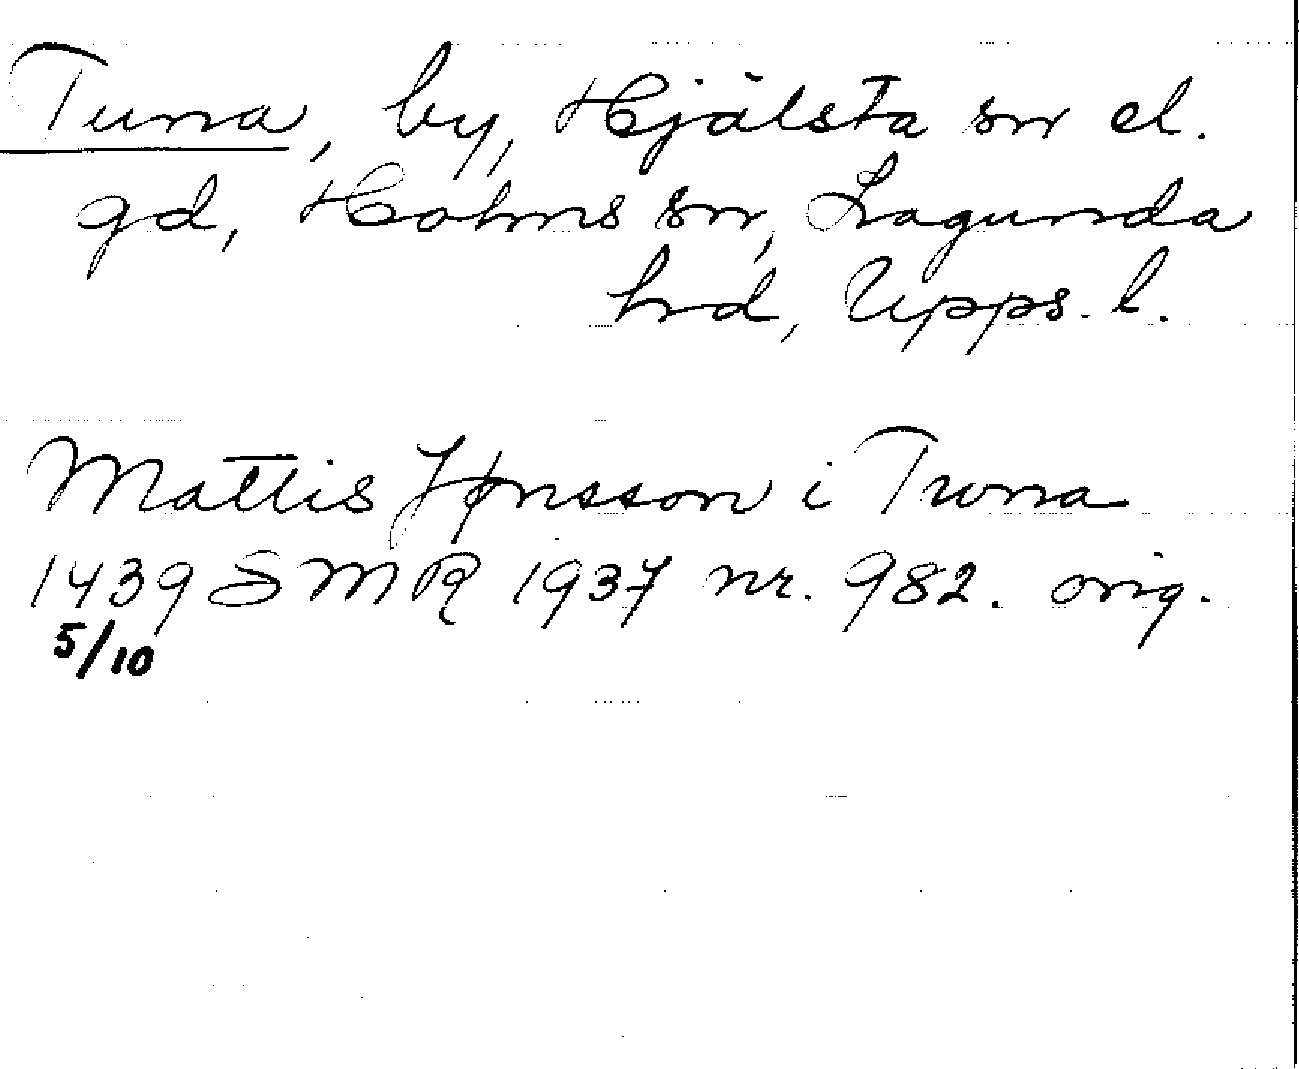 Tuna, by, Hjälsta sn el.
gd, Holms sn, Lagunda
hd, Upps. l.
Mattis Jønsson i Twna
1439 SMR 1937 nr. 982. orig.
5/10